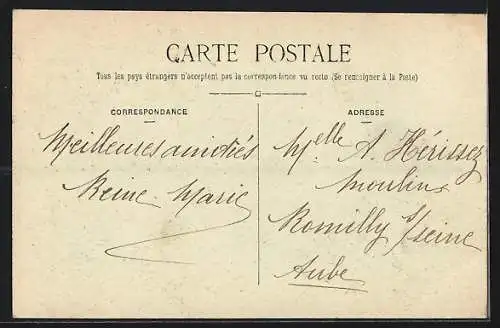 CARTE POSTALE
Tous les pays étrangers n'acceptent pas la correspondance au recto (Se renseigner à la Poste)
CORRESPONDANCE
Meilleures amitiés
Reine-Marie
ADRESSE
Melle A. Hérissez
Moulin
Romilly s/seine
Aube